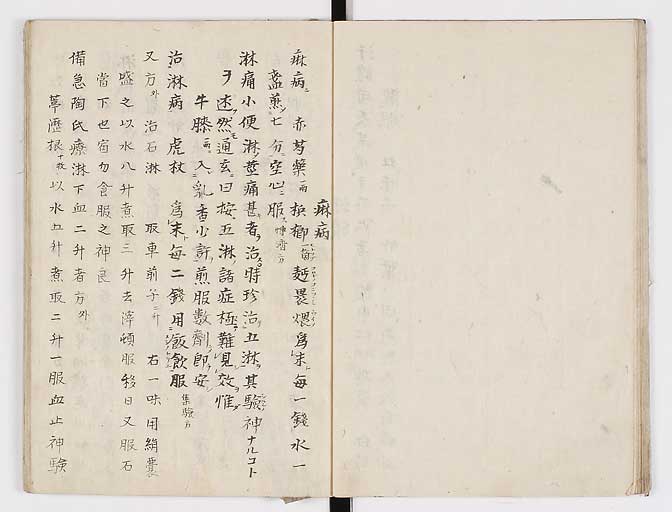 痳病
痳病ニ 赤芍藥一兩 梹榔一箇麪畏煨爲末毎一錢水一
盞煎七分空心ニ服 博濟方
淋痛小便淋莖痛甚者治時珍治五淋其驗神ナルコト
ヲ述然通玄曰按五淋諸症極難見效惟
牛膝一兩入乳香少許煎服數劑即安
治淋病 虎杖 爲末毎二錢用飯飲服 集驗方
又方外 治石淋 取車前子二升 右一味用絹囊
盛之以水八升煮取三升去滓頓服移日又服石
當下也宿勿食服之神良
備急陶氏療淋下血二升者方外
葦瀝根十枚以水五升煮取二升一服血止神驗